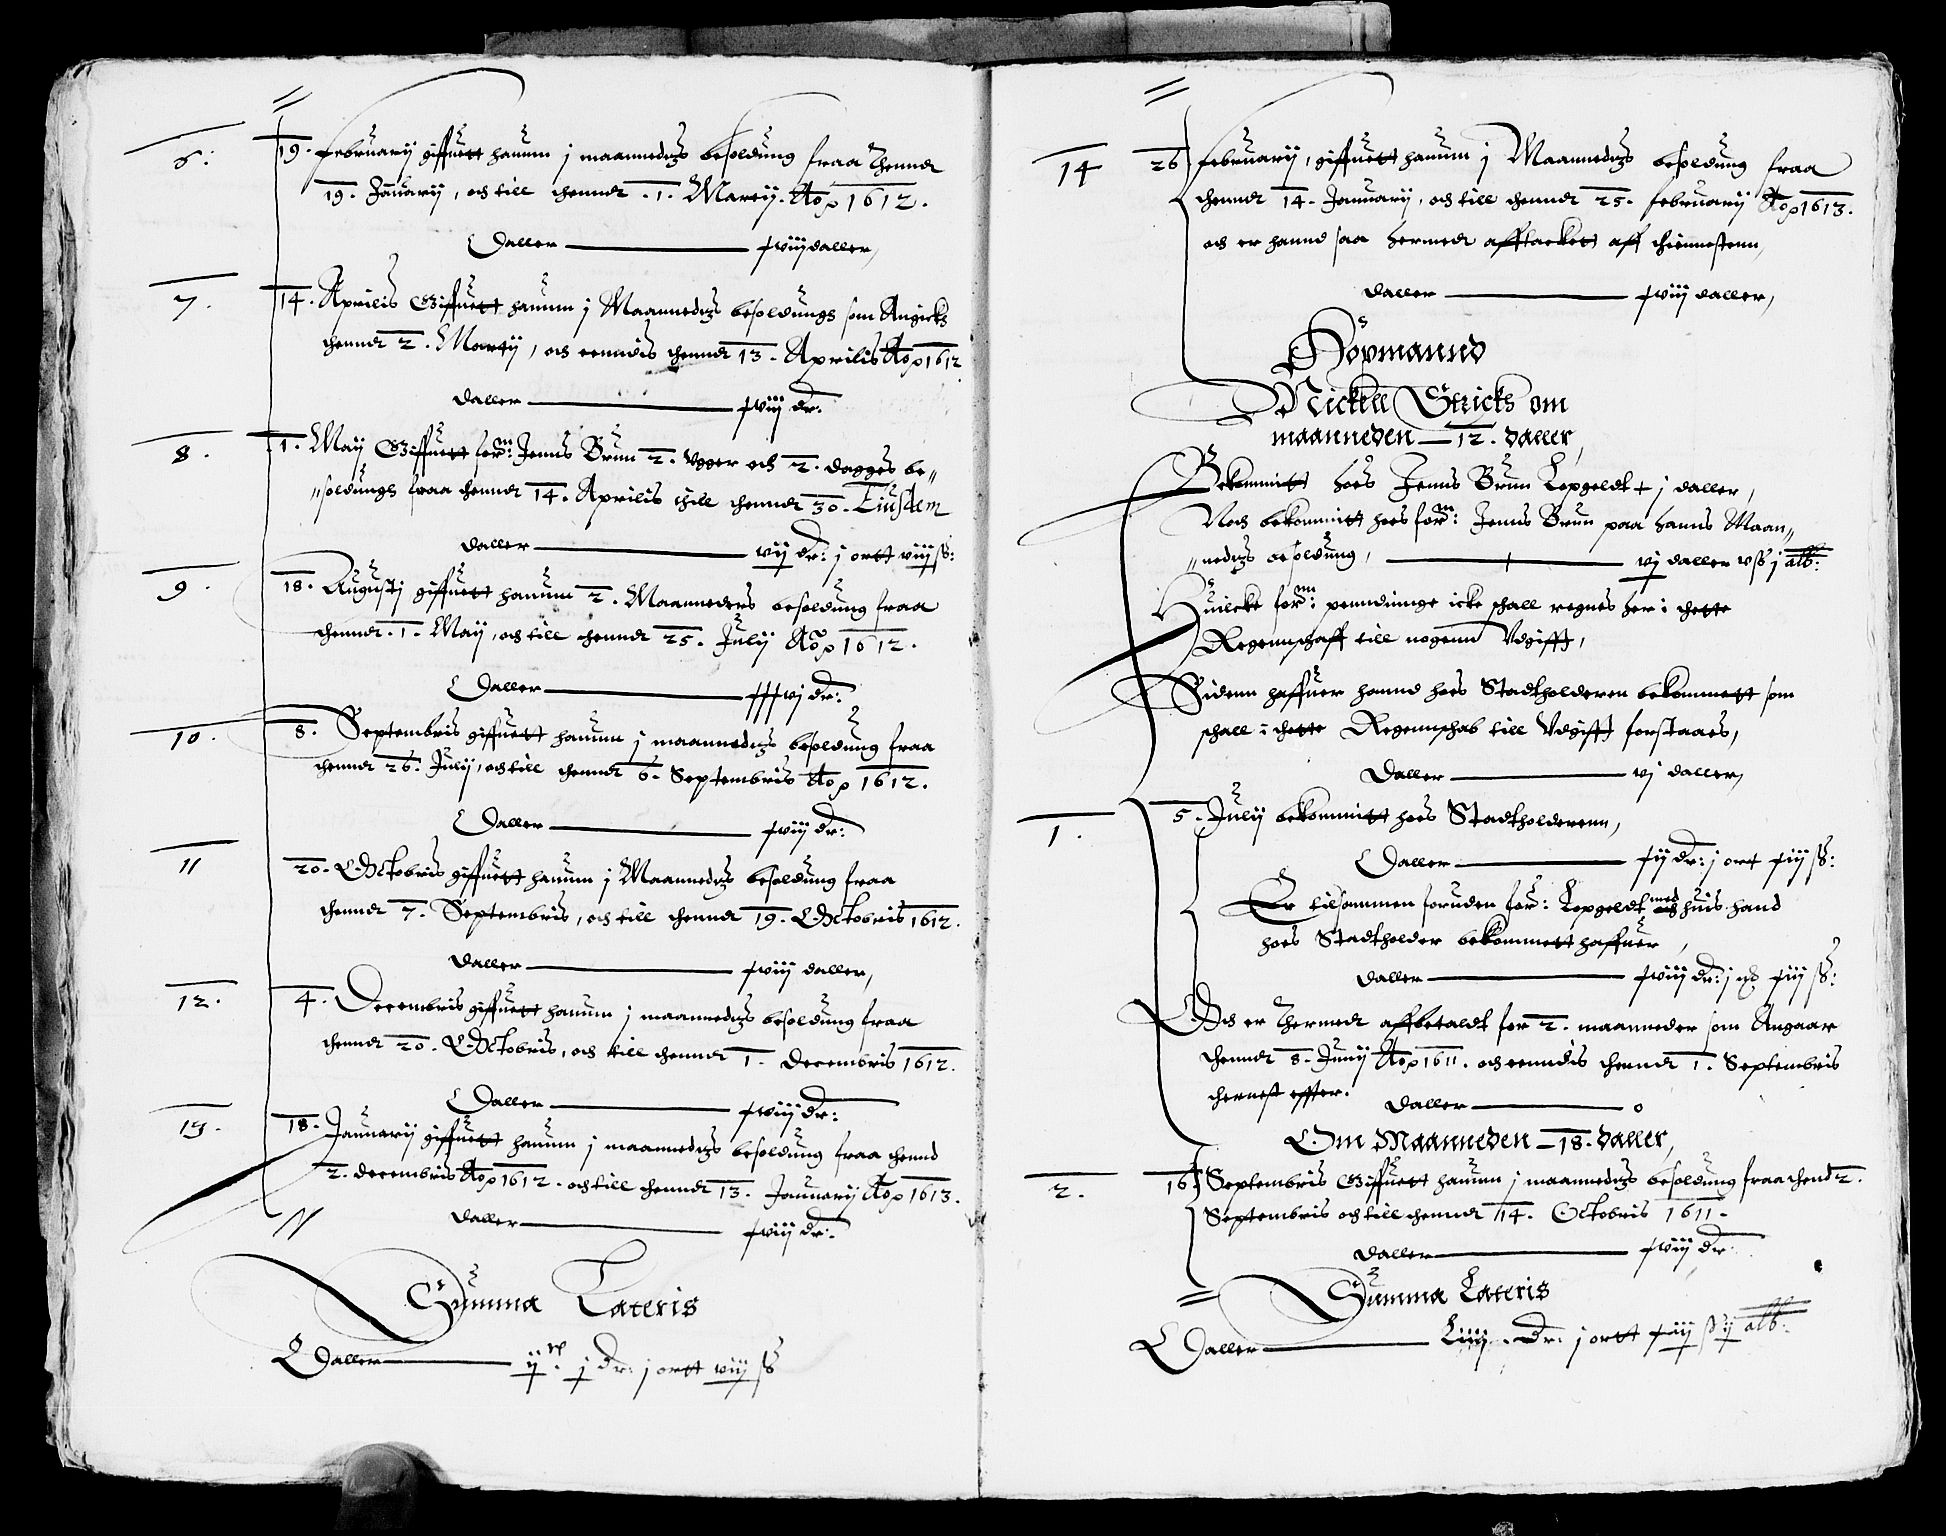 6. 19. februarij giffuett hannum j maannedtzs besoldung fraa thennd
19. Januarij, och till thennd .1. Martij. Ao 1612.
Daller — xviij daller,
7. 14. Aprilis Giffuett hannum j Maannedtzs besoldungs som Angicks
thennd 2. Martij, och enndis thennd 13. Aprilis Ao 1612
daller — xviij dr:
8. 1. Maij Giffuett for:m Jenns Brun 2. Uger och 2. dagges be„
„soldungs fraa thennd 14. Aprilis thill thennd 30. Eiusdem
daller — vij dr: j ortt viij ss:
9. 18. Augustj giffuett hannum 2. Maanneders besoldung fraa
thennd .1. Maij, och till thennd 25. Julij Ao 1612.
Daller — xxxvj dr:
10. 8. Septembris giffuett hannum j maannedtzs besoldung fraa
thennd 26. Julij, och till thennd 6. Septembris Ao 1612.
Daller — xviij dr:
11 20. Octobris giffuett hannum j Maannedtzs besoldung fraa
thennd 7. Septembris, och till thennd 19. Octobris 1612.
daller — xviij daller,
12. 4. Decembris giffuett hannum j maannedtzs besoldung fraa
thennd 20. Octobris, och till thennd 1. decembris 1612.
Daller — xviij dr:
13. 18. Januarij giffuett hannum j maannedtzs besoldung fraa thennd
2. decembris Ao 1612. och till thennd 13. Januarij Ao 1613.
daller — xviij dr:
Summa Lateris
Daller — ij c. j dr: j ortt viij ss
14 26 februarij, giffuett hannum j Maannedtzs besoldung fraa
thennd 14. Januarij, och till thennd 25. februarij Ao 1613.
och er hannd saa hermedt afftacket aff thiennestenn,
daller — xviij daller,
Höpmannd
Nickell Stricks om
maanneden — 12. daller,
Bekommitt hoes Jenns Brun Löpgeldt + j daller,
Noch bekommitt hoes for:m Jenns Brun paa hanns Maan„
„nedtzs besoldung, — vj daller v ss j alb:
Huilcke for:m penndinnge icke schall regnes her i thette
Regennschaff till nogenn Vdgifft,
Sidenn haffuer hannd hoes Stadtholderen bekommett som
schall i thette Regennschab till Vdgifft forstaaes,
Daller — vj daller,
1. 5. Julij bekommitt hoes Stadtholderenn,
Daller — xij dr: j ort xiij ss:
Er tilsammen foruden for: Löpgeldt, med huis hand
hoes Stadtholder bekommett haffuer,
daller — xviij dr: j ort xiij ss:
Och er hermedt affbetaldt for 2. maanneder som Angaar
thennd 8. Junij Ao 1611. och enndis thennd 1. Septembris
thernest effter.
daller — 0
Om Maanneden — 18. daller,
2. 16 Septembris Giffuett hannum j maannedtzs besoldung fraa thend 2.
Septembris och till thennd 14. Octobris 1611.
daller — xviij dr:
Summa Lateris
Daller — Liiij. dr: j ortt xiij ss ij alb: